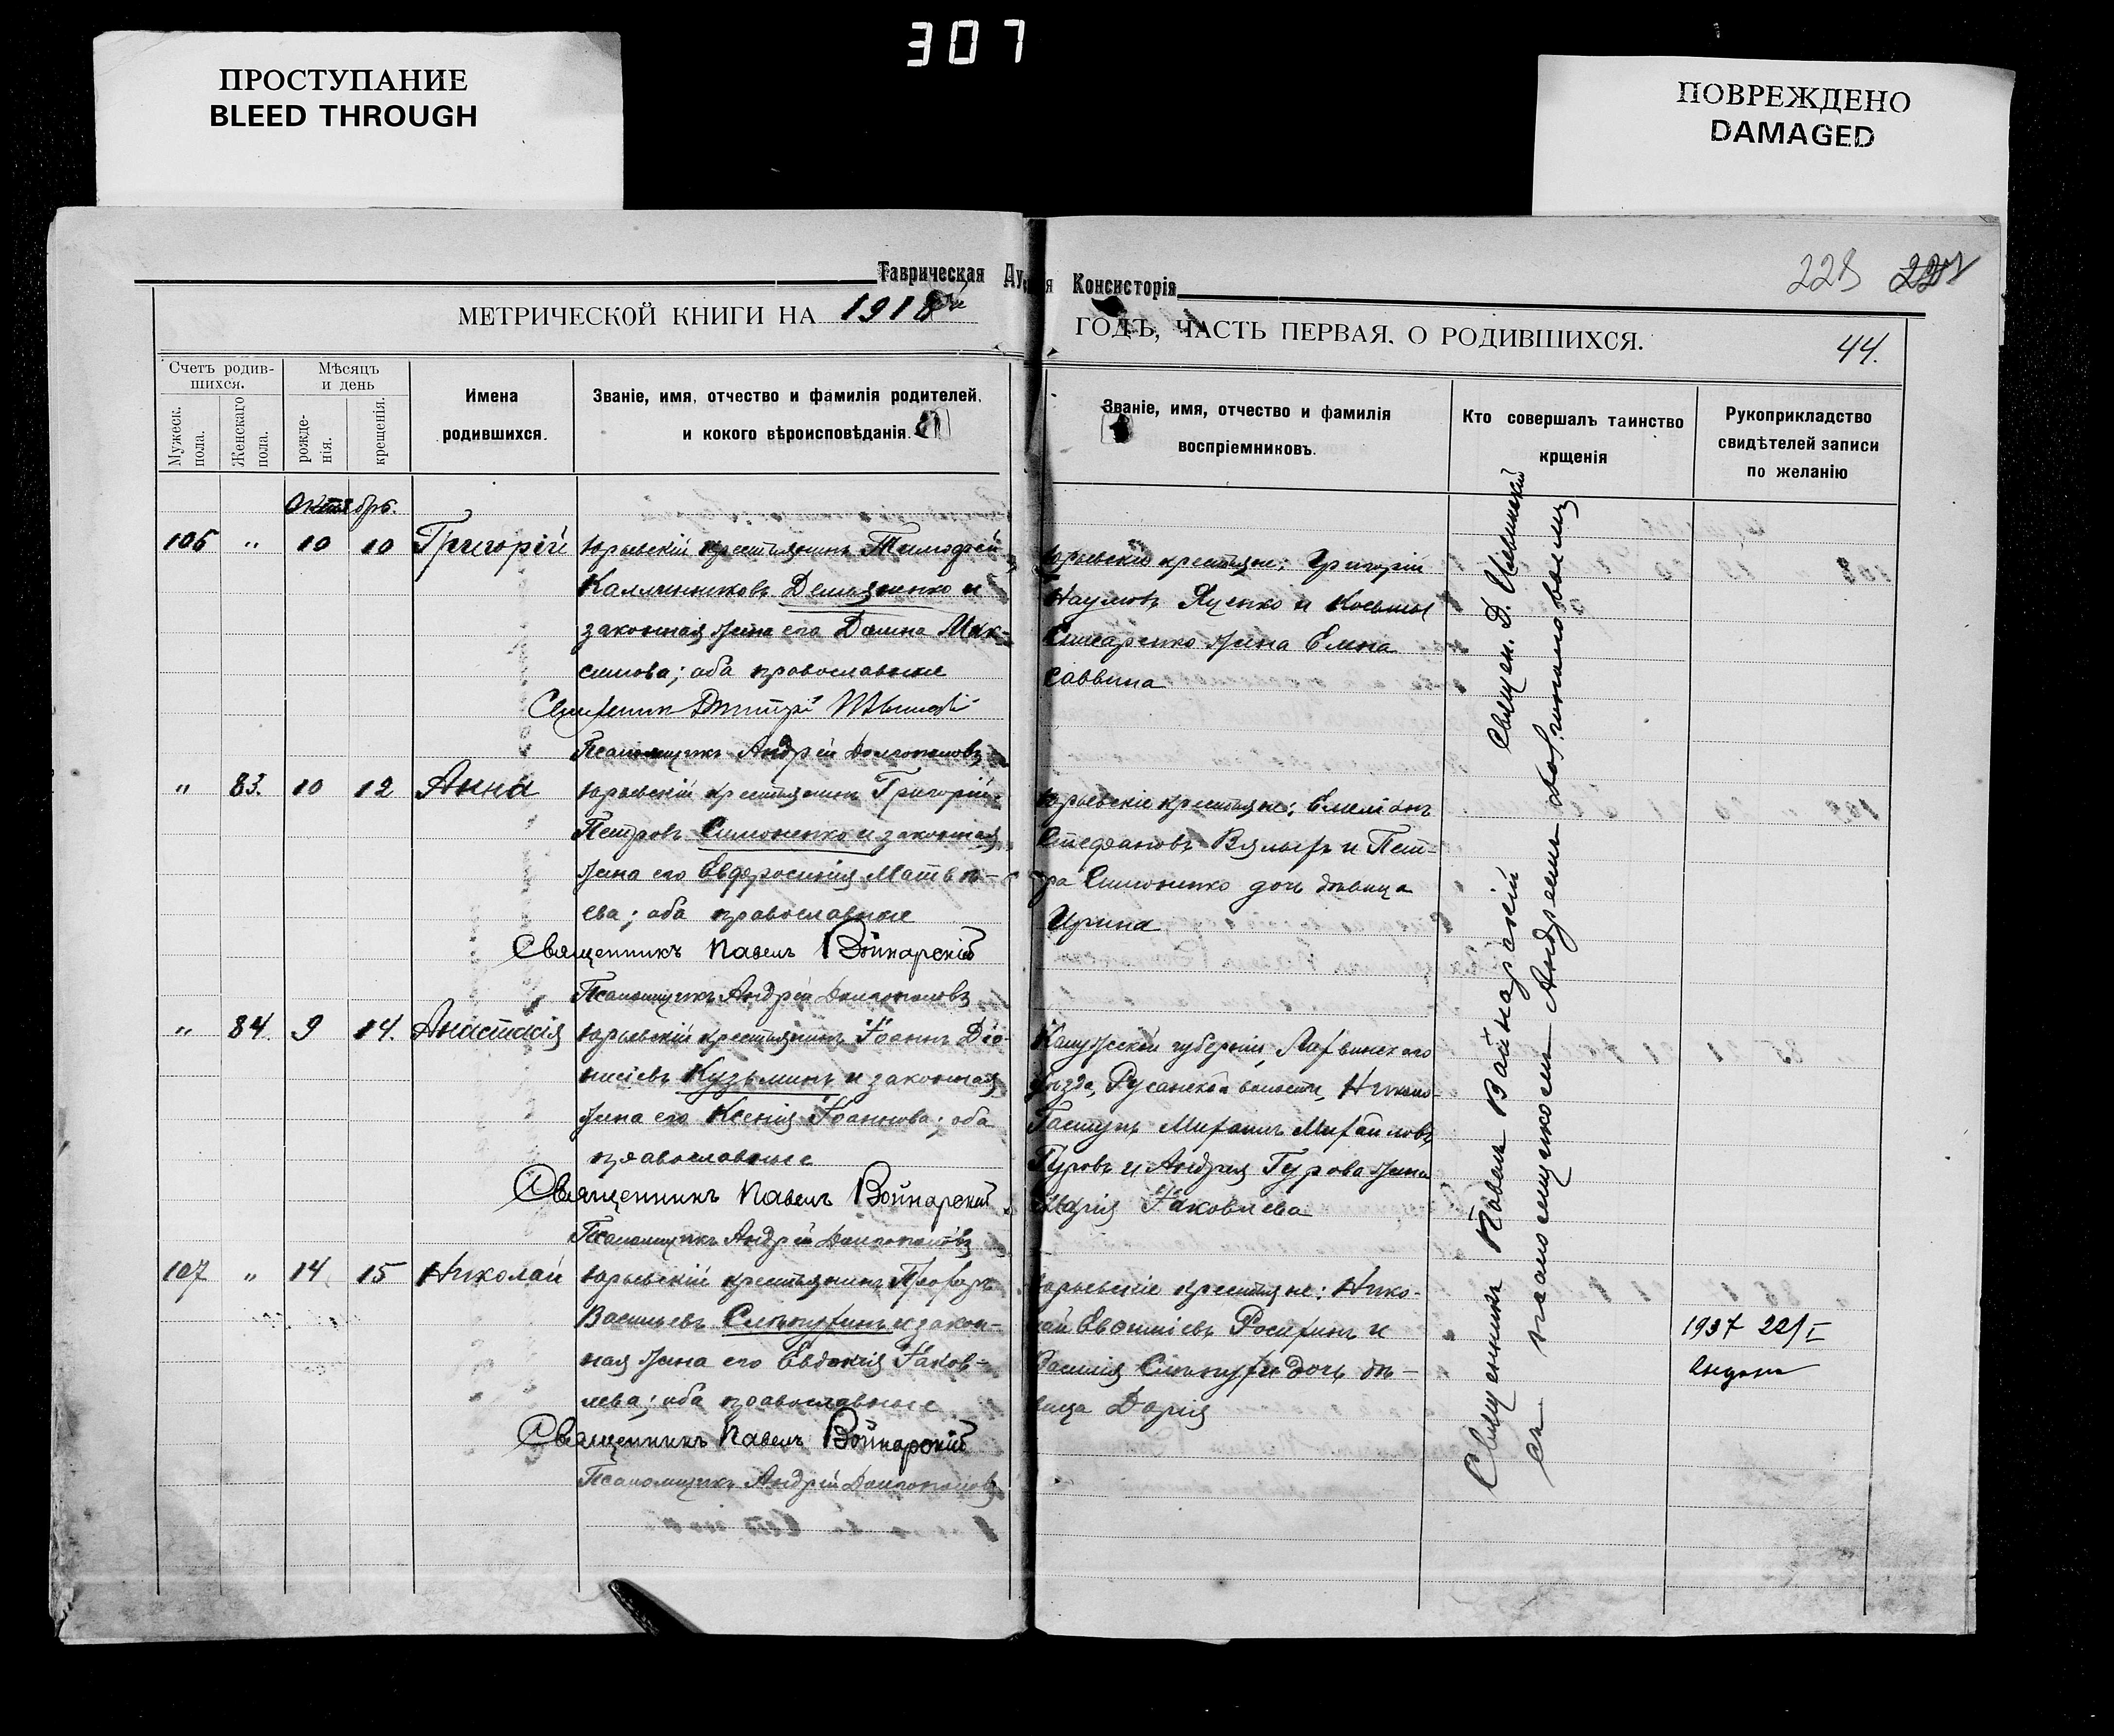 307
ПРОСТУПАНИЕ
BLEED THROUGH
ПОВРЕЖДЕНО
DAMAGED
Таврическая Ду я Консисторія
МЕТРИЧЕСКОЙ КНИГИ НА 1918
ГОДЪ, ЧАСТЬ ПЕРВАЯ. О РОДИВШИХСЯ.
44.
Счетъ родив-
шихся.
Мужеск.
пола.
Женскаго
пола.
Мѣсяцъ
и день
рожде-
нія.
крещенія.
Имена
родившихся.
Званіе, имя, отчество и фамилія родителей,
и кокого вѣроисповѣданія.
Званіе, имя, отчество и фамилія
воспріемниковъ.
Кто совершалъ таинство
крщенія
Рукоприкладство
свидѣтелей записи
по желанію
Октябрь.
106 " 10 10 Григорій
Юрьевскій крестьянинъ Тимофей
Каллиниковъ Демяненко и
законная жена его Домна Мак-
симова; оба православные
Священник Дмитрій
Псаломщикъ Андрей Долгополовъ
Юрьевскіе крестьяне: Григорій
Наумовъ Яценко и Косьмы
жена Елена
Саввина
" 83. 10 12 Анна
Юрьевскій крестьянинъ Григорій
Петровъ Симоненко и законная
жена его Евфросинія Матвѣ-
ева; оба православные
Священникъ Павелъ Войнарскій
Псаломщикъ Андрей Долгополовъ
Юрьевскіе крестьяне: Емеліанъ
Стефановъ и Пет-
ра Симоненко дочь дѣвица
Ирина
" 84. 9 14. Анастасія
Юрьевскій крестьянинъ Іоаннъ Діо-
нисіевъ Кузьминъ и законная
жена его Ксенія Іоаннова; оба
православные
Священникъ Павелъ Войнарскій
Псаломщикъ Андрей Долгополовъ
Калужской губерніи,
уѣзда, волости,
Михаилъ Михайловъ
Гуровъ и Андрея Гурова жена
Марія Іаковлева
107 " 14 15 Николай
Юрьевскій крестьянинъ Прохоръ
Васильевъ и закон-
ная жена его Евдокія Іаков-
лева; оба православные
Священникъ Павелъ Войнарскій
Псаломщикъ Андрей Долгополовъ
Юрьевскіе крестьяне: Нико-
лай Евфиміевъ и
Василія дочь дѣ-
вица Дарія
Священ. Д.
Священникъ Павелъ Войнарскій
съ псаломщикомъ Андреемъ Долгополовымъ
1937 22/I